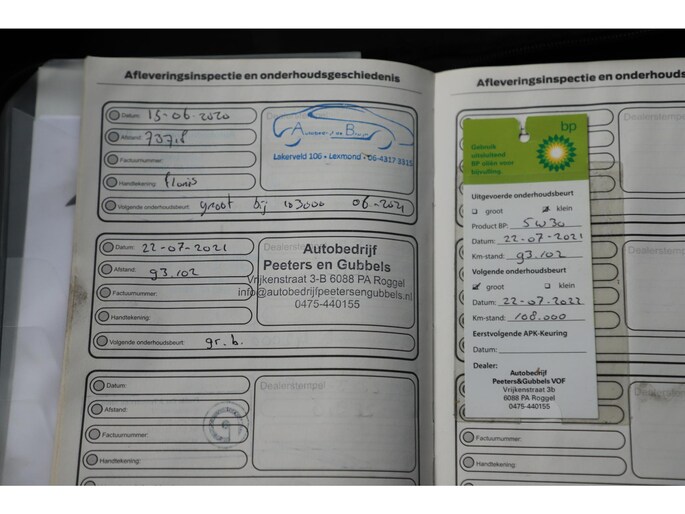 Afleveringsinspectie en onderhoudsgeschiedenis
Datum: 15-06-2020
Afstand: 73718
Factuurnummer:
Handtekening:
Volgende onderhoudsbeurt: groot bij 103000 06-2021
Lakerveld 106 • Lexmond • 06-4317 3315
Datum: 22-07-2021
Afstand: 93.102
Factuurnummer:
Handtekening:
Volgende onderhoudsbeurt: gr. b.
Autobedrijf
Peeters en Gubbels
Vrijkenstraat 3-B 6088 PA Roggel
info@autobedrijfpeetersengubbels.nl
0475-440155
Datum:
Afstand:
Factuurnummer:
Handtekening:
Dealerstempel
Afleveringsinspectie en onderhouds
bp
Gebruik
uitsluitend
BP oliën voor
bijvulling.
Uitgevoerde onderhoudsbeurt
groot klein
Product BP: 5W30
Datum: 22-07-2021
Km-stand: 93.102
Volgende onderhoudsbeurt
groot klein
Datum: 22-07-2022
Km-stand: 108.000
Eerstvolgende APK-Keuring
Datum:
Dealer:
Autobedrijf
Peeters&Gubbels VOF
Vrijkenstraat 3b
6088 PA Roggel
0475-440155
Factuurnummer:
Handtekening: